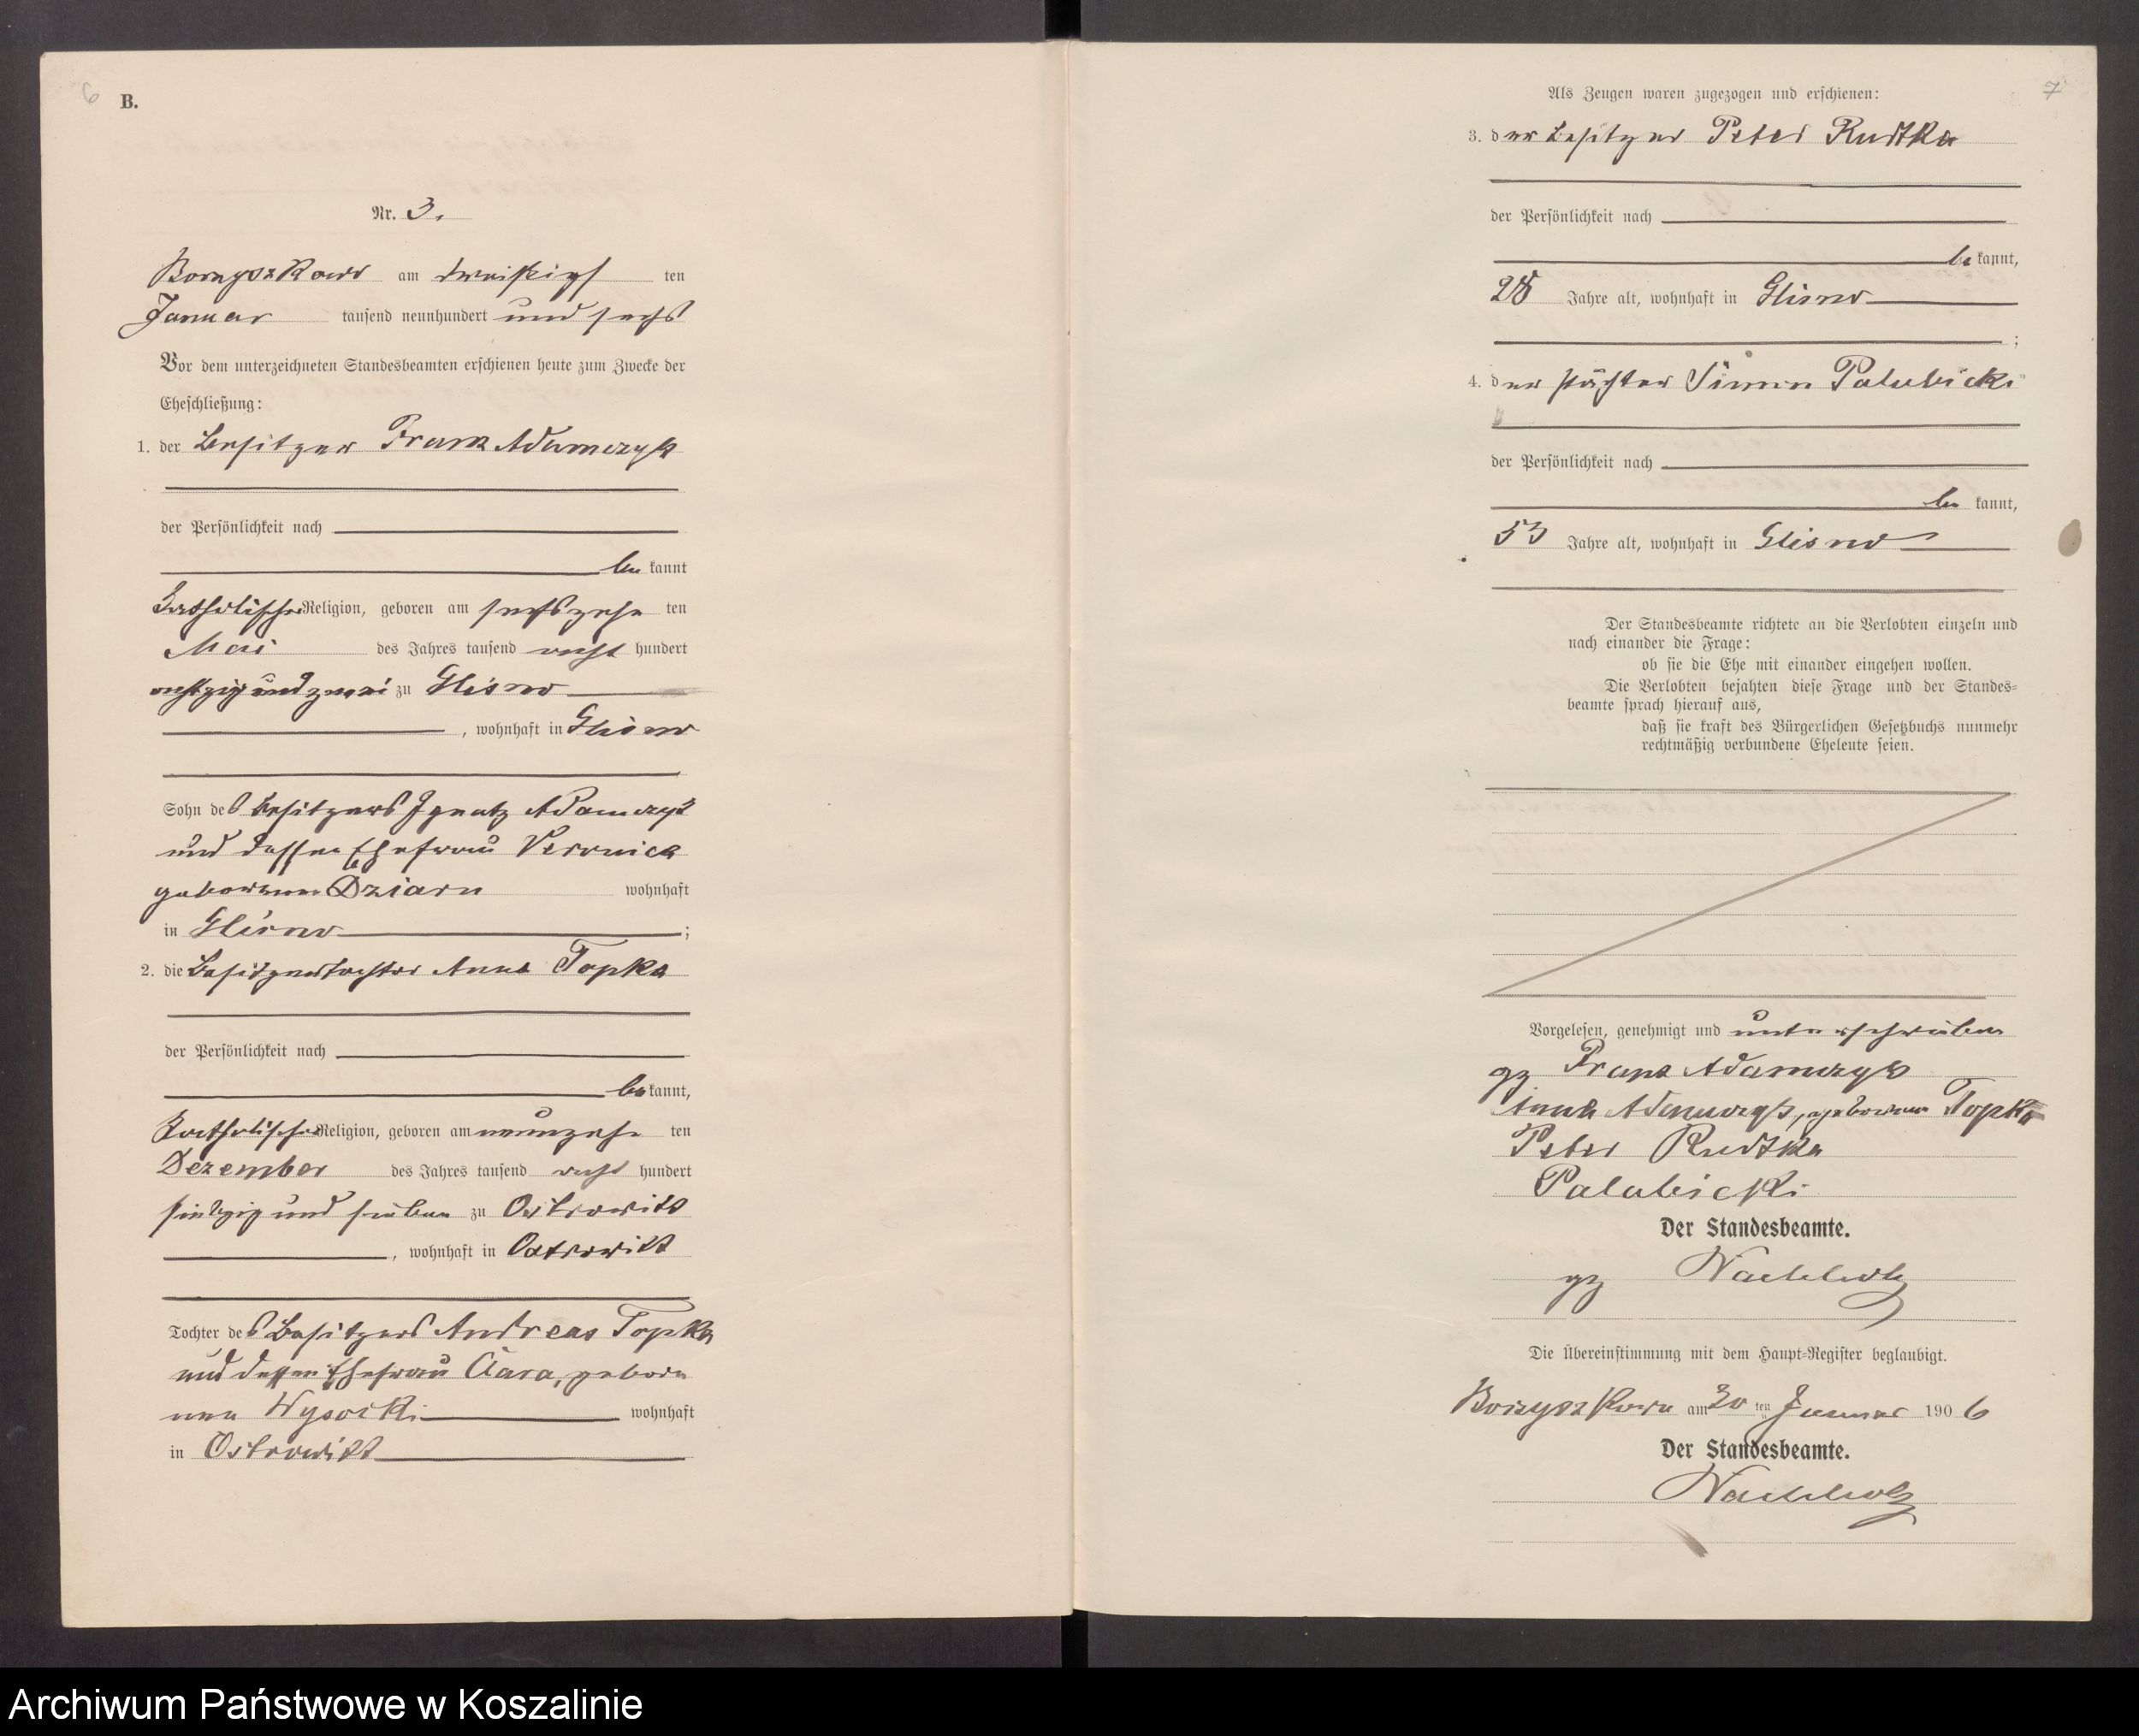 6
B.
Nr. 3.
Borzyszkowo am dreißigs ten
Januar tausend neunhundert und sechs
Vor dem unterzeichneten Standesbeamten erschienen heute zum Zwecke der
Eheschließung:
1. der Besitzer Franz Adamczyk
der Persönlichkeit nach
be kannt
Katholischer Religion, geboren am sechszehn ten
Mai des Jahres tausend acht hundert
achtzig und zwei zu Glisno
, wohnhaft in Glisno
Sohn des Besitzers Ignatz Adamczyk
und dessen Ehefrau Veronica
geborenen Dziarn wohnhaft
in Glisno ;
2. die Besitzertochter Anna Topka
der Persönlichkeit nach
be kannt,
Katholischer Religion, geboren am neunzehn ten
Dezember des Jahres tausend acht hundert
siebzig und sieben zu Ostrowitt
, wohnhaft in Ostrowitt
Tochter des Besitzers Andreas Topka
und dessen Ehefrau Clara, gebore
nen Wysocki wohnhaft
in Ostrowitt
7
Als Zeugen waren zugezogen und erschienen:
3. der Besitzer Peter Rudtka
der Persönlichkeit nach
be kannt,
28 Jahre alt, wohnhaft in Glisno
;
4. der Pächter Simon Palubicki
der Persönlichkeit nach
be kannt,
53 Jahre alt, wohnhaft in Glisno
Der Standesbeamte richtete an die Verlobten einzeln und
nach einander die Frage:
ob sie die Ehe mit einander eingehen wollen.
Die Verlobten bejahten diese Frage und der Standes-
beamte sprach hierauf aus,
daß sie kraft des Bürgerlichen Gesetzbuchs nunmehr
rechtmäßig verbundene Eheleute seien.
Vorgelesen, genehmigt und unterschrieben
gz Franz Adamczyk
Anna Adamczyk, geborene Topka
Peter Rudtka
Palubicki
Der Standesbeamte.
gz Nachholz
Die Übereinstimmung mit dem Haupt-Register beglaubigt.
Borzyszkowo am 30 ten Januar 190 6
Der Standesbeamte.
Nachholz
Archiwum Państwowe w Koszalinie